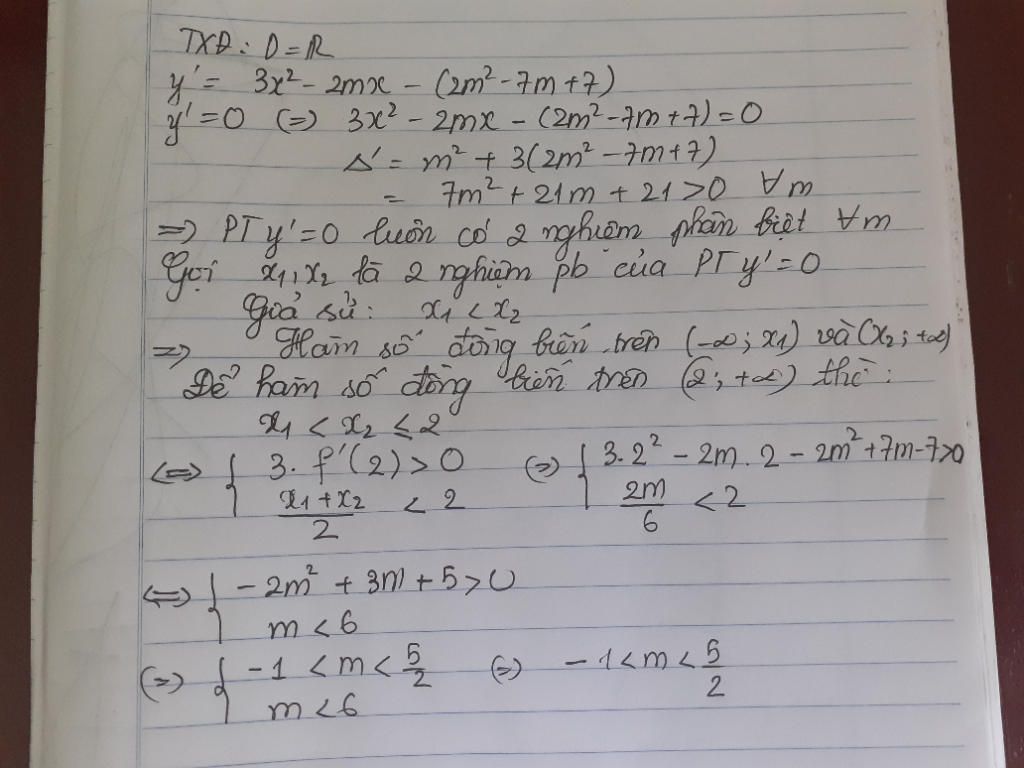 TXĐ: D=ℝ
y' = 3x² - 2mx - (2m² - 7m + 7)
y' = 0 (=) 3x² - 2mx - (2m² - 7m + 7) = 0
Δ' = m² + 3(2m² - 7m + 7)
= 7m² + 21m + 21 > 0 ∀m
=> PT y' = 0 luôn có 2 nghiệm phân biệt ∀m
Gọi x₁, x₂ là 2 nghiệm pb của PT y' = 0
Giả sử: x₁ < x₂
=> Hàm số đồng biến trên (-∞; x₁) và (x₂; +∞)
Để hàm số đồng biến trên (2; +∞) thì:
x₁ < x₂ ≤ 2
<=> { 3. f'(2) > 0 (=) { 3.2² - 2m.2 - 2m² + 7m - 7 > 0
(x₁ + x₂)/2 < 2 2m/6 < 2
<=> { -2m² + 3m + 5 > 0
m < 6
(=) { -1 < m < 5/2 (=) -1 < m < 5/2
m < 6